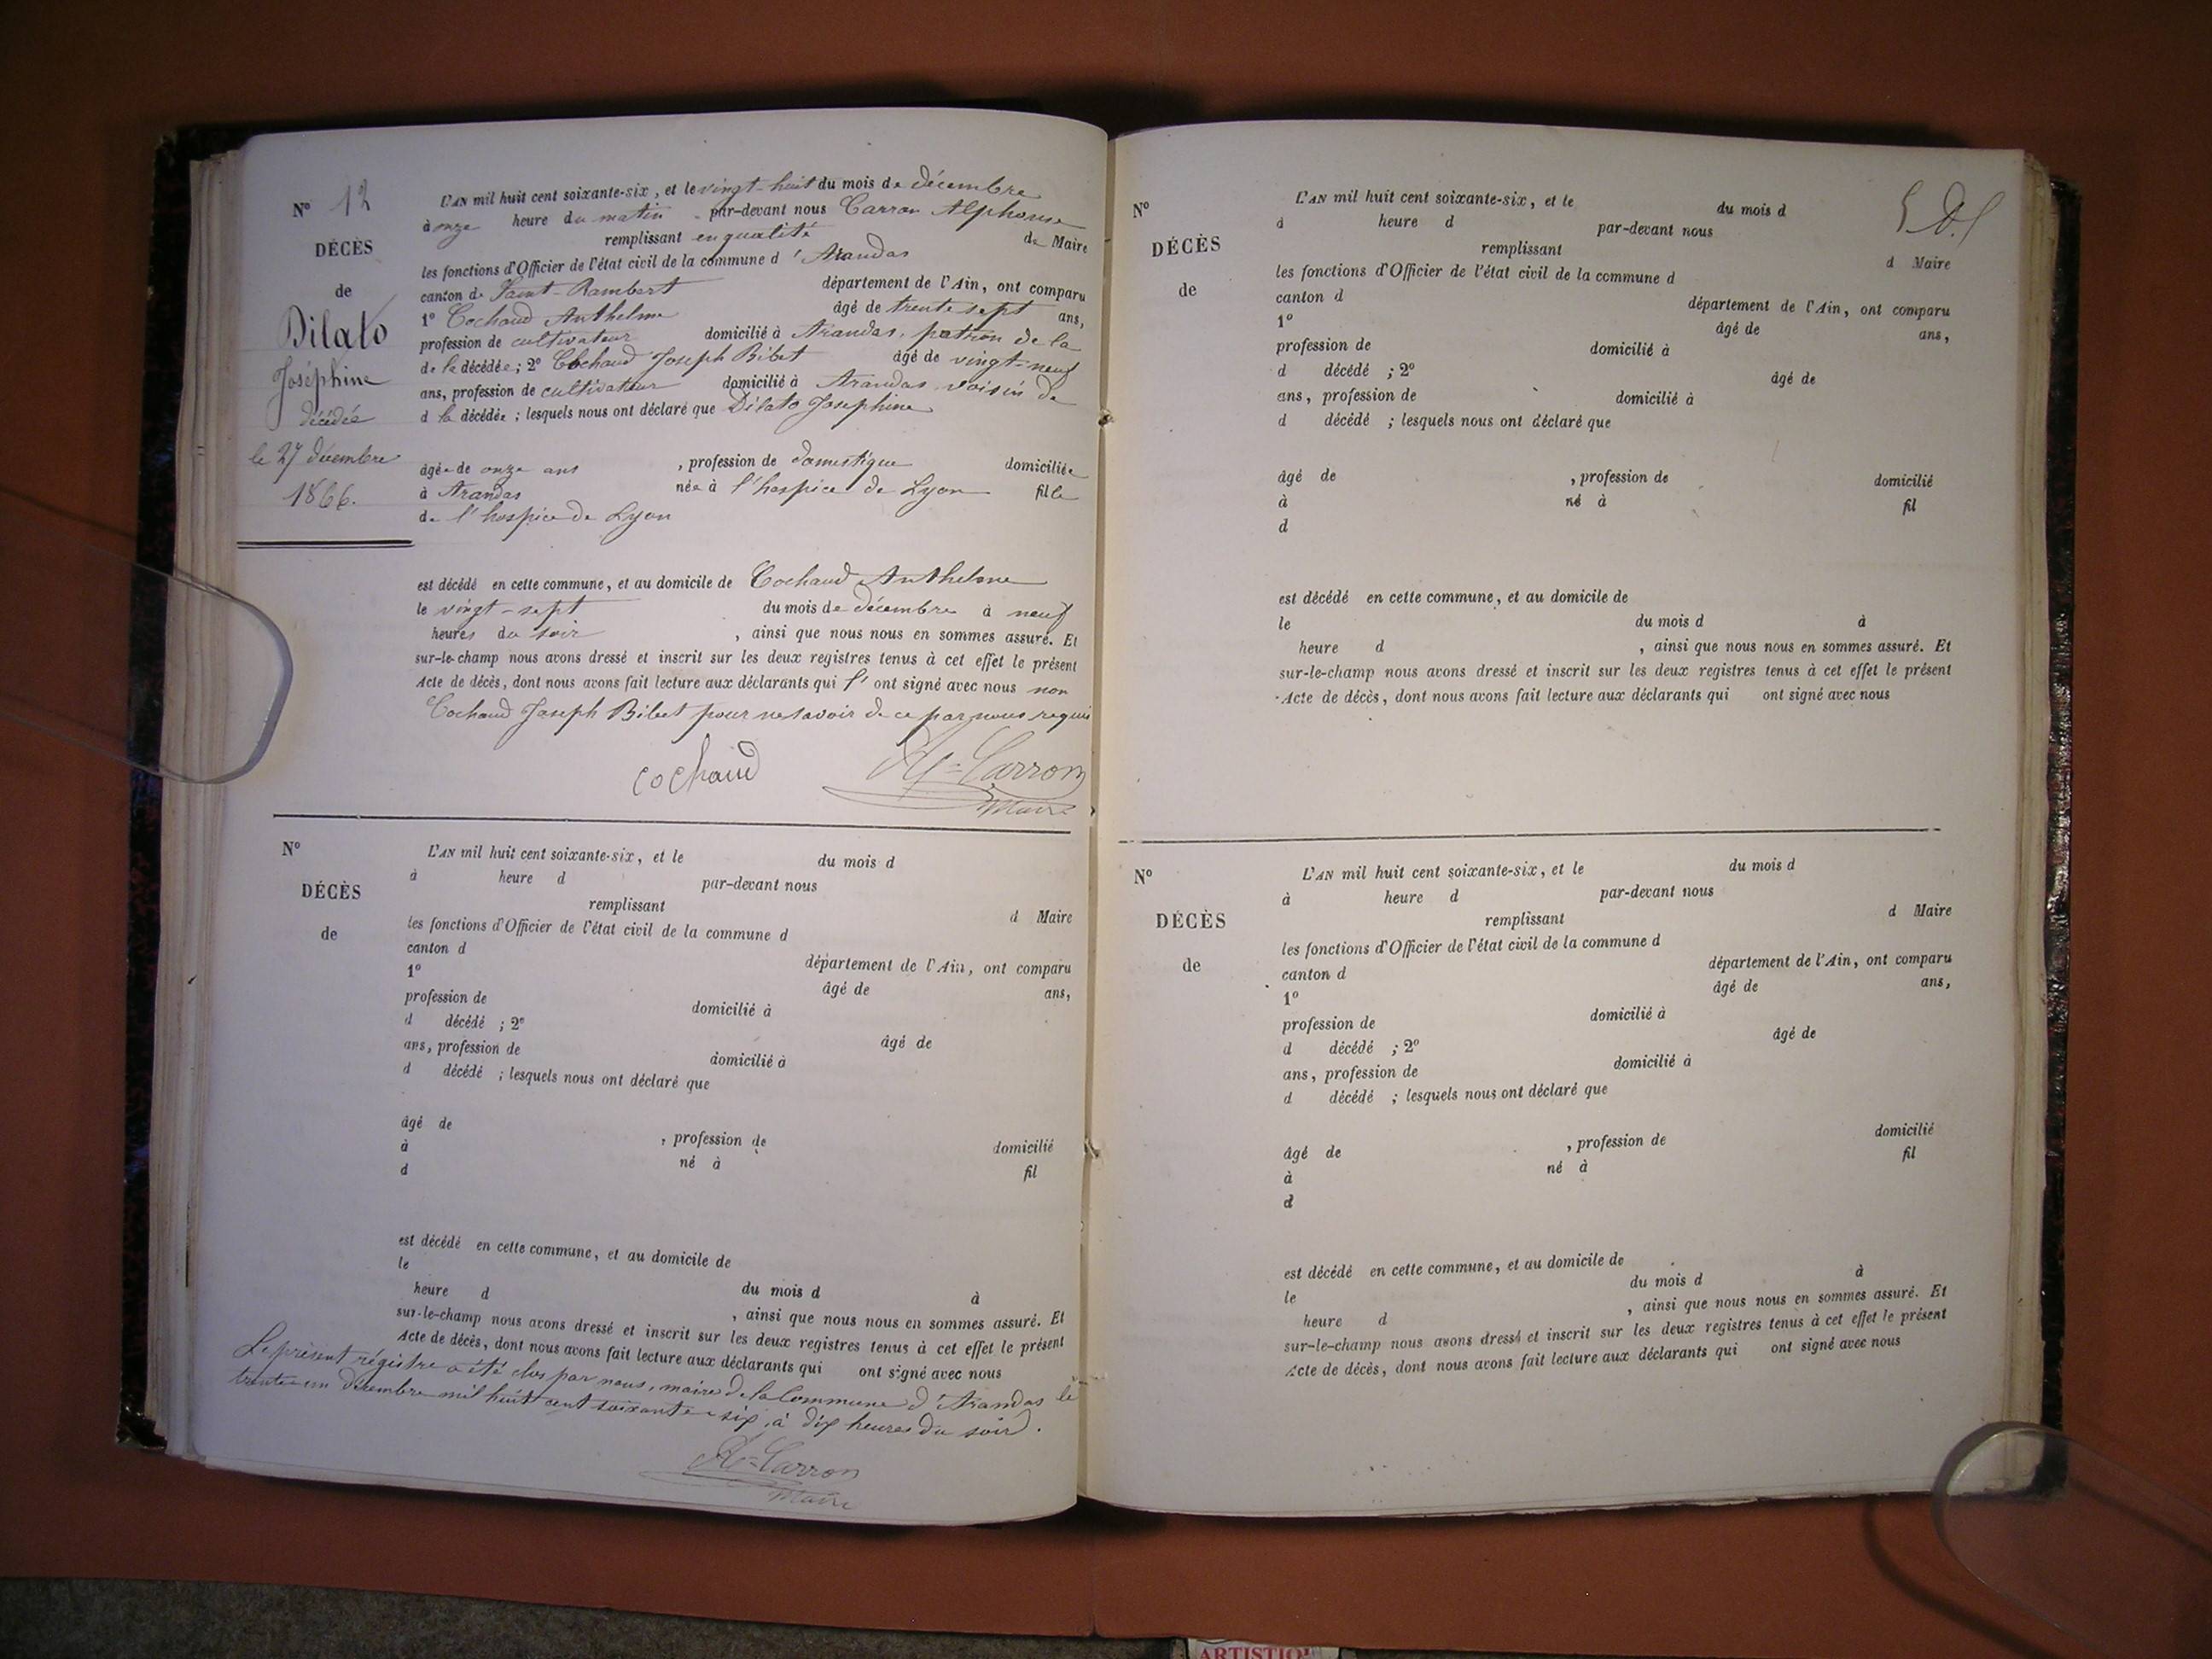 N° 12
DÉCÈS
de
Dilato
Joséphine
décédée
le 27 décembre
1866.
L'AN mil huit cent soixante-six, et le vingt-huit du mois de décembre
à onze heure du matin par-devant nous Carron Alphonse
remplissant en qualité de Maire
les fonctions d'Officier de l'état civil de la commune d'Arandas
canton de Saint-Rambert département de l'Ain, ont comparu
1° Cochaud Anthelme âgé de trente sept ans,
profession de cultivateur domicilié à Arandas, patron de la
de la décédée; 2° Cochaud Joseph Bibet âgé de vingt-neuf
ans, profession de cultivateur domicilié à Arandas voisin de
d la décédée; lesquels nous ont déclaré que Dilato Josephine
âgée de onze ans, profession de domestique domiciliée
à Arandas née à l'hospice de Lyon fille
de l'hospice de Lyon
est décédé en cette commune, et au domicile de Cochaud Anthelme
le vingt-sept du mois de décembre à neuf
heures du soir, ainsi que nous nous en sommes assuré. Et
sur-le-champ nous avons dressé et inscrit sur les deux registres tenus à cet effet le présent
Acte de décès, dont nous avons fait lecture aux déclarants qui l'ont signé avec nous non
Cochaud Joseph Bibet pour ne savoir de ce par nous requis
cochaud
Carron
Maire
N°
DÉCÈS
de
L'AN mil huit cent soixante-six, et le du mois d
à heure d par-devant nous
remplissant d Maire
les fonctions d'Officier de l'état civil de la commune d
canton d département de l'Ain, ont comparu
1° âgé de ans,
profession de domicilié à
d décédé ; 2° âgé de
ans, profession de domicilié à
d décédé ; lesquels nous ont déclaré que
âgé de , profession de domicilié
à né à fil
d
est décédé en cette commune, et au domicile de
le du mois d à
heure d , ainsi que nous nous en sommes assuré. Et
sur-le-champ nous avons dressé et inscrit sur les deux registres tenus à cet effet le présent
Acte de décès, dont nous avons fait lecture aux déclarants qui ont signé avec nous
Le présent régistre a été clos par nous, maire de la Commune d'Arandas le
trente-un Décembre mil huit cent soixante-six, à dix heures du soir.
Carron
Maire
N°
DÉCÈS
de
L'AN mil huit cent soixante-six, et le du mois d
à heure d par-devant nous
remplissant d Maire
les fonctions d'Officier de l'état civil de la commune d
canton d département de l'Ain, ont comparu
1° âgé de ans,
profession de domicilié à
d décédé ; 2° âgé de
ans, profession de domicilié à
d décédé ; lesquels nous ont déclaré que
âgé de , profession de domicilié
à né à fil
d
est décédé en cette commune, et au domicile de
le du mois d à
heure d , ainsi que nous nous en sommes assuré. Et
sur-le-champ nous avons dressé et inscrit sur les deux registres tenus à cet effet le présent
Acte de décès, dont nous avons fait lecture aux déclarants qui ont signé avec nous
N°
DÉCÈS
de
L'AN mil huit cent soixante-six, et le du mois d
à heure d par-devant nous
remplissant d Maire
les fonctions d'Officier de l'état civil de la commune d
canton d département de l'Ain, ont comparu
1° âgé de ans,
profession de domicilié à
d décédé ; 2° âgé de
ans, profession de domicilié à
d décédé ; lesquels nous ont déclaré que
âgé de , profession de domicilié
à né à fil
d
est décédé en cette commune, et au domicile de
le du mois d à
heure d , ainsi que nous nous en sommes assuré. Et
sur-le-champ nous avons dressé et inscrit sur les deux registres tenus à cet effet le présent
Acte de décès, dont nous avons fait lecture aux déclarants qui ont signé avec nous